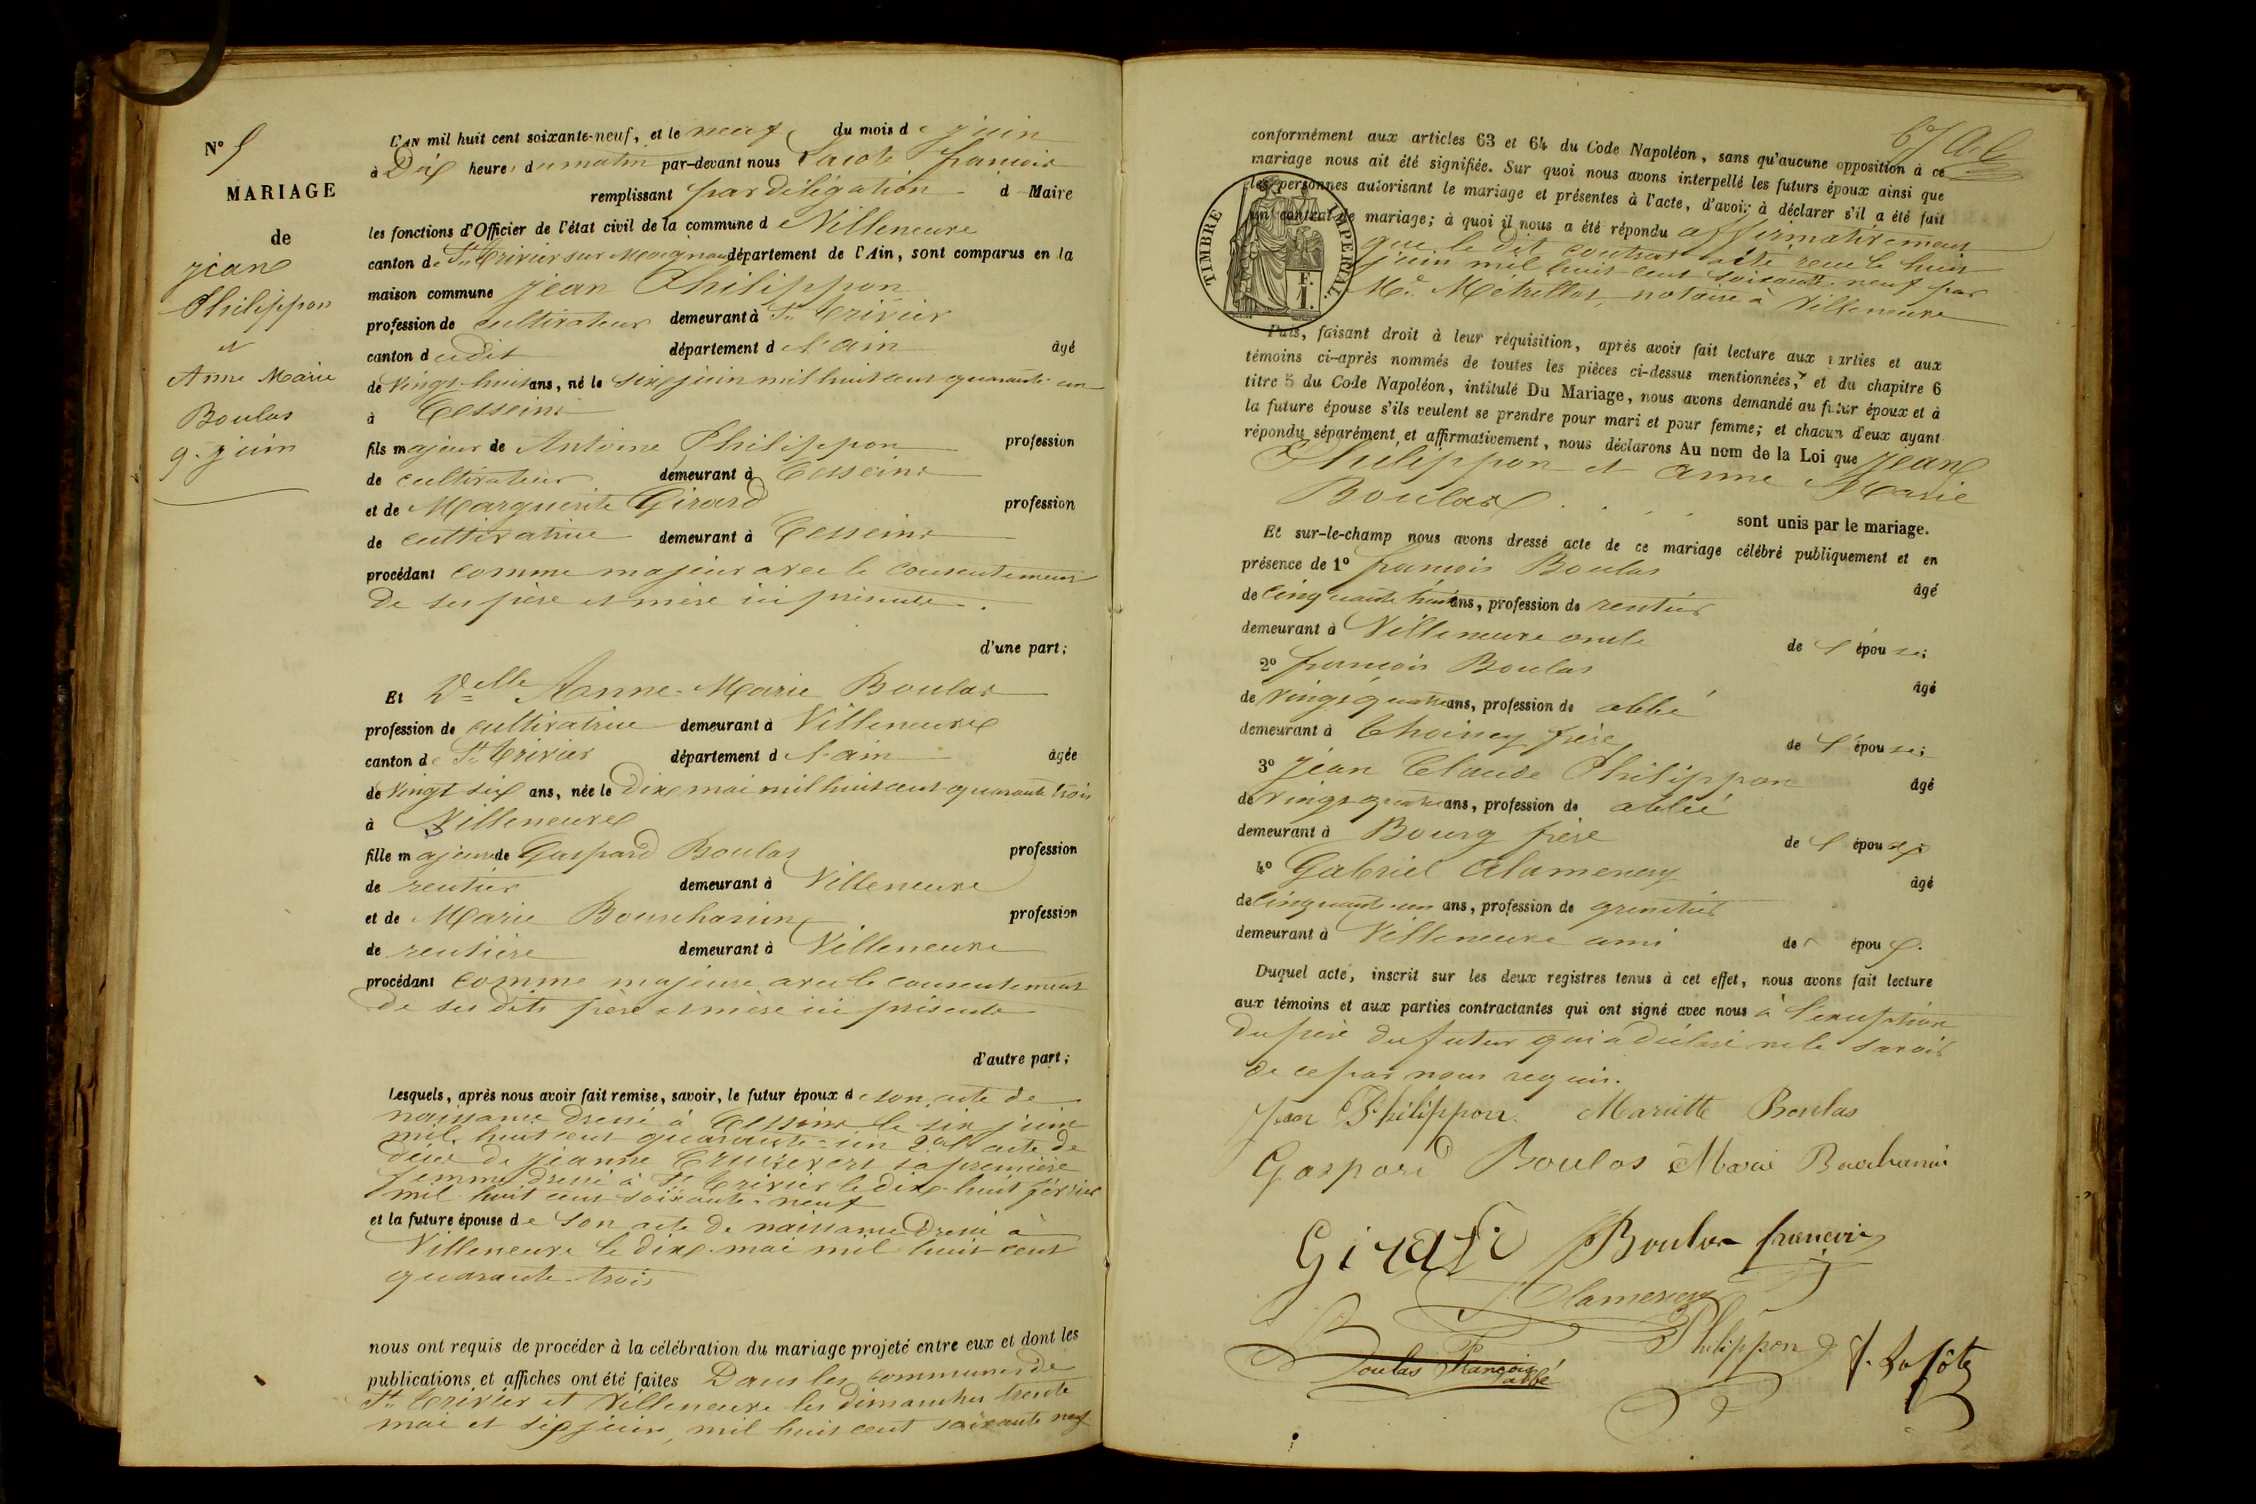 N° 5
MARIAGE
de
jean
Philippon
et
Anne Marie
Boulas
9. juin
L'AN mil huit cent soixante-neuf, et le neuf du mois de juin
à Dix heures du matin par-devant nous Lacote françois
remplissant par déligation d Maire
les fonctions d'Officier de l'état civil de la commune de Villeneuve
canton de St Trivier sur Moignans département de l'Ain, sont comparus en la
maison commune jean Philippon
profession de cultivateur demeurant à St Trivier
canton dudit département de l'ain âgé
de vingt-huit ans, né le six juin mil huit cent quarante-un
à Cesseins
fils majeur de Antoine Philippon profession
de cultivateur demeurant à Cesseins
et de Marguerite Girard profession
de cultivatrice demeurant à Cesseins
procédant comme majeur avec le consentement
de ses père et mère ici présents.
d'une part;
Et Delle Anne-Marie Boulas
profession de cultivatrice demeurant à Villeneuve
canton de St Trivier département de l'ain âgée
de vingt six ans, née le dix mai mil huit cent quarante trois
à Villeneuve
fille majeure de Gaspard Boulas profession
de rentier demeurant à Villeneuve
et de Marie Bourchanin profession
de rentière demeurant à Villeneuve
procédant comme majeure avec le consentement
de ses dits père et mère ici présents
d'autre part;
Lesquels, après nous avoir fait remise, savoir, le futur époux de son acte de
naissance dressé à Cesseins le six juin
mil huit cent quarante-un 2° acte de
décès de jeanne sa première
femme dressé à St Trivier le dix-huit février
mil huit cent soixante-neuf
et la future épouse de son acte de naissance dressé à
Villeneuve le dix mai mil huit cent
quarante-trois
nous ont requis de procéder à la célébration du mariage projeté entre eux et dont les
publications et affiches ont été faites Dans les communes de
St Trivier et Villeneuve les dimanches trente
mai et six juin, mil huit cent soixante neuf
conformément aux articles 63 et 64 du Code Napoléon, sans qu'aucune opposition à ce
mariage nous ait été signifiée. Sur quoi nous avons interpellé les futurs époux ainsi que
les personnes autorisant le mariage et présentes à l'acte, d'avoir à déclarer s'il a été fait
un contrat de mariage; à quoi il nous a été répondu affirmativement
que le dit contrat a été reçu le huit
juin mil huit cent soixante-neuf par
Me notaire à Villeneuve
TIMBRE IMPÉRIAL.
F.
1.
Puis, faisant droit à leur réquisition, après avoir fait lecture aux parties et aux
témoins ci-après nommés de toutes les pièces ci-dessus mentionnées, et du chapitre 6
titre 5 du Code Napoléon, intitulé Du Mariage, nous avons demandé au futur époux et à
la future épouse s'ils veulent se prendre pour mari et pour femme; et chacun d'eux ayant
répondu séparément et affirmativement, nous déclarons Au nom de la Loi que jean
Philippon et anne Marie
Boulas . . . .
sont unis par le mariage.
Et sur-le-champ nous avons dressé acte de ce mariage célébré publiquement et en
présence de 1° françois Boulas âgé
de cinquante huit ans, profession de rentier
demeurant à Villeneuve oncle de l'épouse;
2° françois Boulas âgé
de vingt quatre ans, profession de abbé
demeurant à frère de l'épouse;
3° jean Claude Philippon âgé
de vingt quatre ans, profession de abbé
demeurant à Bourg frère de l'époux;
4° Gabriel Alamercery âgé
de cinquante-un ans, profession de grenetier
demeurant à Villeneuve ami de époux.
Duquel acte, inscrit sur les deux registres tenus à cet effet, nous avons fait lecture
aux témoins et aux parties contractantes qui ont signé avec nous à l'exception
du père du futur qui a déclaré ne le savoir
de ce par nous requis.
jean Philippon. Mariette Boulas
Gaspard Boulas Marie Bourchanin
Girard Boulas françois
Alamercery
Boulas François abbé Philippon f. Lacôte